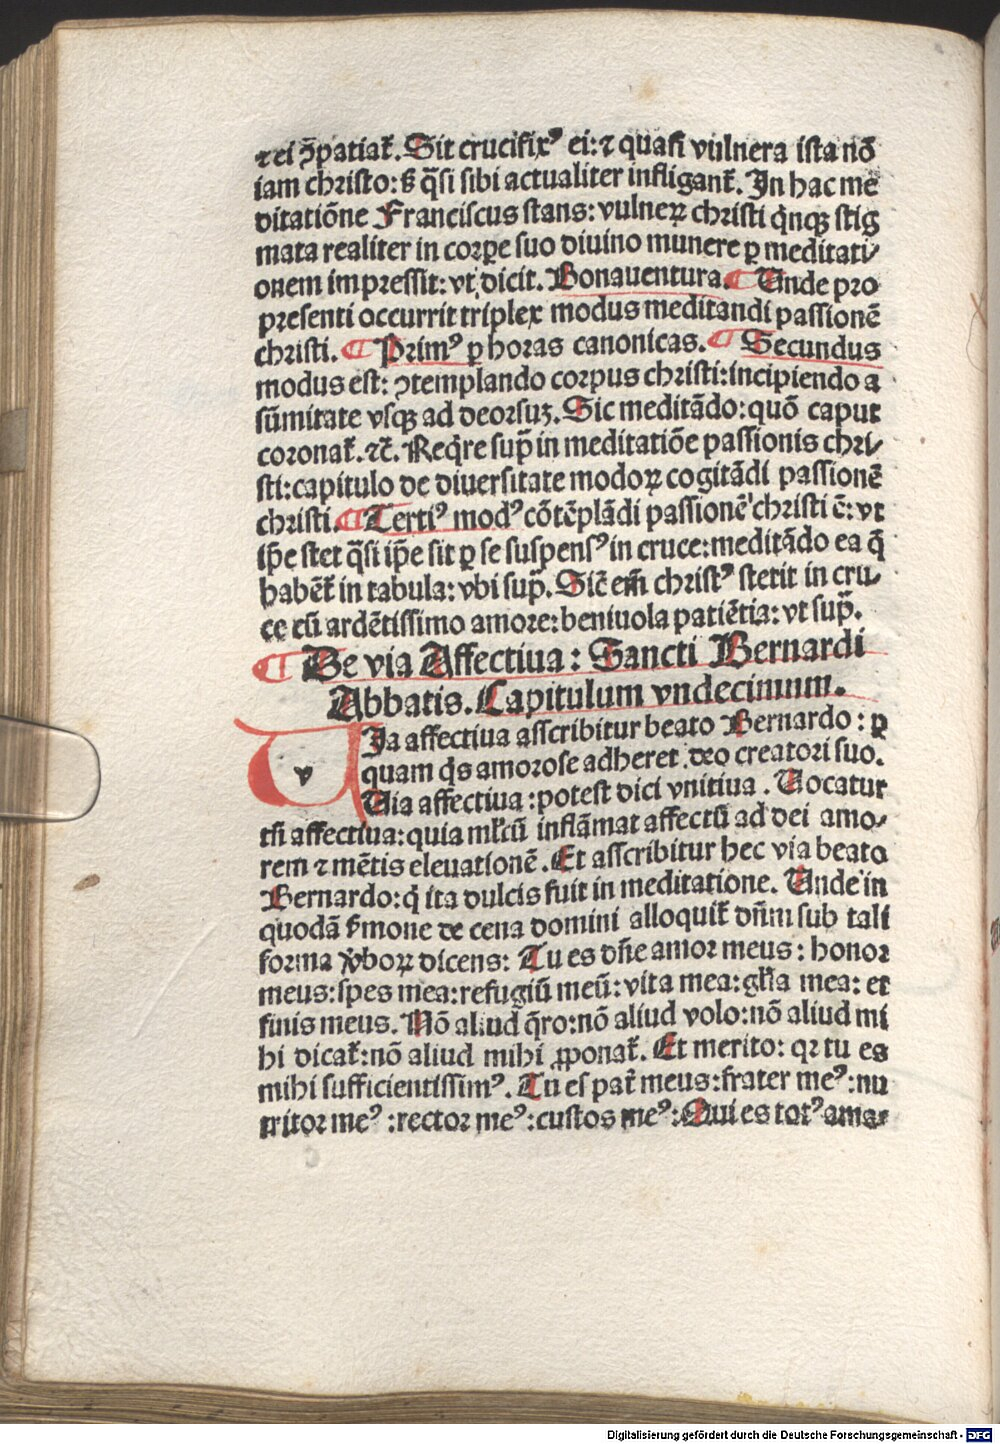 ⁊ ei ꝯ̄patiat᷑. Sit crucifixꝰ ei: ⁊ quaſi vulnera iſta nō
iam chriſto: ẜ q̄ſi ſibi actualiter infligant᷑. In hac me
ditatiōne Franciſcus ſtans: vulneꝝ chriſti q̇nqꝫ ſtig
mata realiter in corꝑe ſuo diuino munere ꝑ meditati⸗
onem impreſſit: vt dicit. Bonauentura. ¶ Unde pro
preſenti occurrit triplex modus meditandi paſſionē
chriſti. ¶ Primꝰ ꝑ horas canonicas. ¶ Secundus
modus eſt: ꝯtemplando corpus chriſti: incipiendo a
ſūmitate vſqꝫ ad deorſuꝫ. Sic meditādo: quō caput
coronat᷑. ⁊c̄. Req̇re ſup̄ in meditatiōe paſſionis chri⸗
ſti: capitulo de diuerſitate modoꝝ cogitādi paſſionē
chriſti. ¶ Tertiꝰ modꝰ cōtēplādi paſſionē chriſti ē: vt
ip̄e ſtet q̄ſi ip̄e ſit ꝑ ſe ſuſpenſꝰ in cruce: meditādo ea q̄
habēt᷑ in tabula: vbi ſup̄. Sic̄ em̄ chriſtꝰ ſtetit in cru⸗
ce cū ardētiſſimo amore: beniuola patiētia: vt ſup̄.
¶ De via Affectiua: Sancti Bernardi
Abbatis. Capitulum vndecimum.
v Ia affectiua aſſcribitur beato Bernardo: ꝑ
quam q̇s amoroſe adheret deo creatori ſuo.
Uia affectiua: poteſt dici vnitiua. Uocatur
tn̄ affectiua: quia ml̄tū inflāmat affectū ad dei amo⸗
rem ⁊ mētis eleuationē. Et aſſcribitur hec via beato
Bernardo: q̇ ita dulcis fuit in meditatione. Unde in
quodā ẜmone de cena domini alloquit᷑ dn̄m ſub tali
forma v̓boꝝ dicens: Tu es dn̄e amor meus: honor
meus: ſpes mea: refugiū meū: vita mea: gl̄ia mea: et
finis meus. Nō aliud q̄ro: nō aliud volo: nō aliud mi
hi dicat᷑: nō aliud mihi ꝓponat᷑. Et merito: qꝛ tu es
mihi ſufficientiſſimꝰ. Tu eſ pat̄ meus: frater meꝰ: nu
tritor meꝰ: rector meꝰ: cuſtos meꝰ: Qui es totꝰ ama⸗
Digitalisierung gefördert durch die Deutsche Forschungsgemeinschaft - DFG